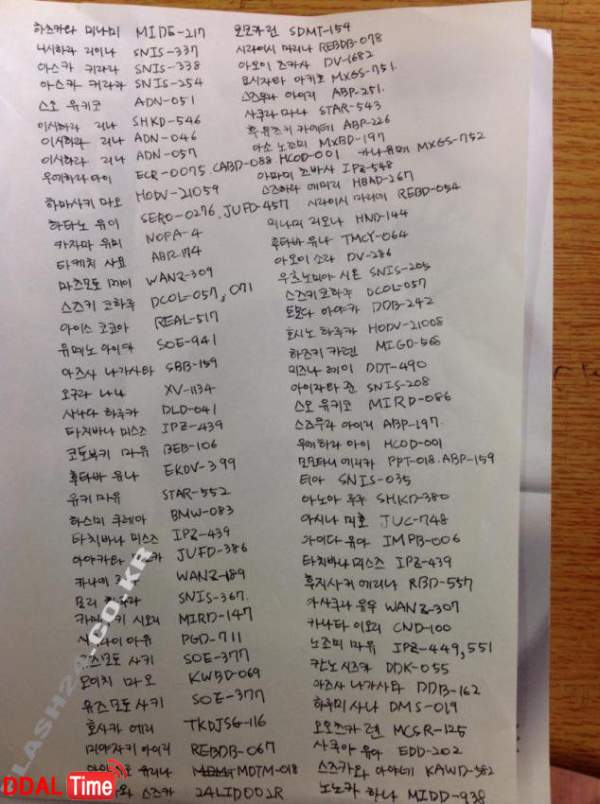 하즈키라 미나미 MIDE-217
니시하라 리이나 SNIS-337
아스카 키라라 SNIS-338
아스카 키라라 SNIS-254
스오 유키코 ADN-051
이시하라 리나 SHKD-546
이시하라 리나 ADN-046
이시하라 리나 ADN-057
우에하라 아이 ECR-0075. CABD-088 HCOD-001
하마사키 마오 HODV-21059
하타노 유이 SERO-0276, JUFD-457
카자마 유미 NOFA-4
타케치 사요 ABR-174
마츠모토 메이 WANZ-309
스즈키 코하루 DCOL-057, 071
아이스 코코아 REAL-517
유메노 아이카 SOE-941
아즈사 나가사타 SBB-159
오구라 나나 XV-1134
사나다 하루카 DLD-041
타치바나 미스즈 IPZ-439
코토부키 마유 BEB-106
후타바 유나 EKDV-399
유키 마유 STAR-552
하스미 쿠레아 BMW-083
타치바나 미스즈 IPZ-439
아야카타 카 JUFD-386
카나에 WANZ-189
모리 SNIS-367.
카 키 시오리 MIRD-147
아유 PGD-711
유즈모토 사키 SOE-377
요이치 마오 KWBD-069
유즈모토 사키 SOE-377
호사카 에리 TKDJSG-116
미야자키 아이리 REBDB-067
유리나 MDTM-018
와 스즈카 24LID002R
모모카 린 SDMT-154
시라이시 마리나 REBDB-078
아오이 츠카사 DV-1682
요시자와 아키호 MXGS-751.
스즈무라 아이리 ABP-251.
사쿠라 마나 STAR-543
후유즈키 카에데 ABP-226
아소 노조미 MXBD-197
카나 유메 MXGS-752
아마미 츠바사 IPZ-548
스즈하라 에미리 HBAD-267
시라이시 마리에 REBD-054
미나미 리오나 HND-144
후타바 유나 TMCY-064
아오이 소라 DV-286
우츠노미야 시온 SNIS-205
스즈키 코하루 DCOL-057
토모다 아야카 DDB-242
호시노 하루카 HODV-21008
하즈키 카렌 MIGD-568
미즈나 레이 DDT-490
아이자타 준 SNIS-208
스오 유키코 MIRD-086
스즈무라 아이리 ABP-197.
우에하라 아이 HCOD-001
모모타니 에리카 PPT-018. ABP-159
티아 SNIS-035
아노아 루루 SHKD-380
아시나 미호 JUC-748
아이다 유아 IMPB-006
타치바나 미스즈 IPZ-439
후지사키 에리나 RBD-557
아사쿠라 유우 WANZ-307
카나타 이오리 CND-100
노조미 마유 IPZ-449,551
칸노 시즈카 DDK-055
아즈사 나가사타 DDB-162
하루미 사나 DMS-019
오오츠카 렌 MCSR-125
사쿠야 유아 EDD-202
스즈카와 아야네 KAWD-582
노노카 하나 MIDD-938
FLASH24.CO.KR
DDAL Time